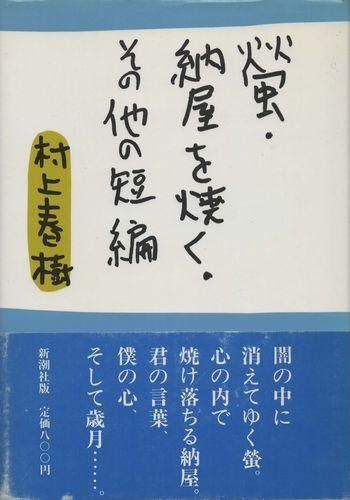 螢・
納屋を焼く・
その他の短編
村上春樹
闇の中に
消えてゆく螢。
心の内で
焼け落ちる納屋。
君の言葉、
僕の心、
そして歳月……。
新潮社版 定価八〇〇円